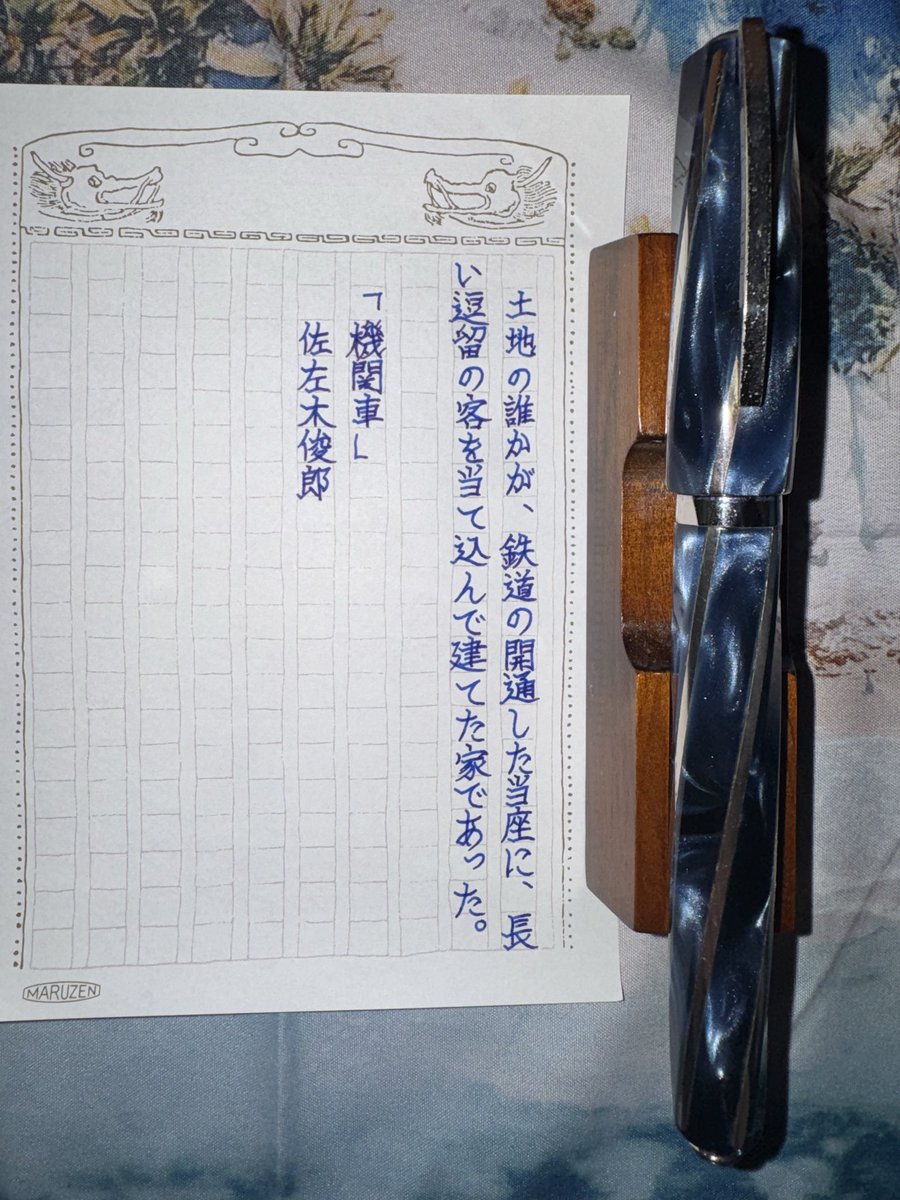 土地の誰かが、鉄道の開通した当座に、長
い逗留の客を当て込んで建てた家であった。
「機関車」
佐左木俊郎
MARUZEN